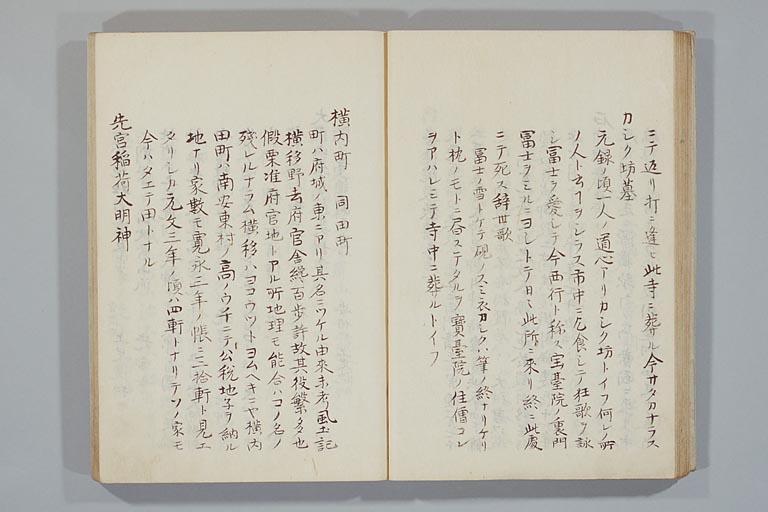 ニテ返リ打ニ逢ヒ此寺ニ葬ル今サタカナラス
カシク坊墓
元録ノ頃一人ノ道心アリカシク坊トイフ何レノ所
ノ人ト云ヲシラス市中ニ乞食シテ狂歌ヲ詠
シ冨士ヲ愛シテ今西行ト称ス宝臺院ノ裏門
冨士ヲミルニヨシトテ日ニ此所ニ来リ終ニ此處
ニテ死ス辞世歌
冨士ノ雪トケテ硯ノスミ衣カシクハ筆ノ終ナリケリ
ト枕ノモトニ居ステタルヲ寳臺院ノ住僧コレ
ヲアハレミテ寺中ニ葬ルトイフ
横内町 同田町
町ハ府城ノ東ニアリ其名ニツケル由来未考風土記
横移野去府官舎纔百歩許故其役繁多也
假粟准府官地トアル所地理モ能合ハコノ名ノ
残レルナラム横移ハヨコウツトヨムヘキニヤ横内
田町ハ南安東村ノ高ノウチニテ公税地子ヲ納ル
地ナリ家數モ寛永三年ノ帳ニ二拾軒ト見エ
タリシカ元文三年ノ頃ハ四軒トナリテソノ家モ
今ハタエテ田トナル
先宮稲荷大明神